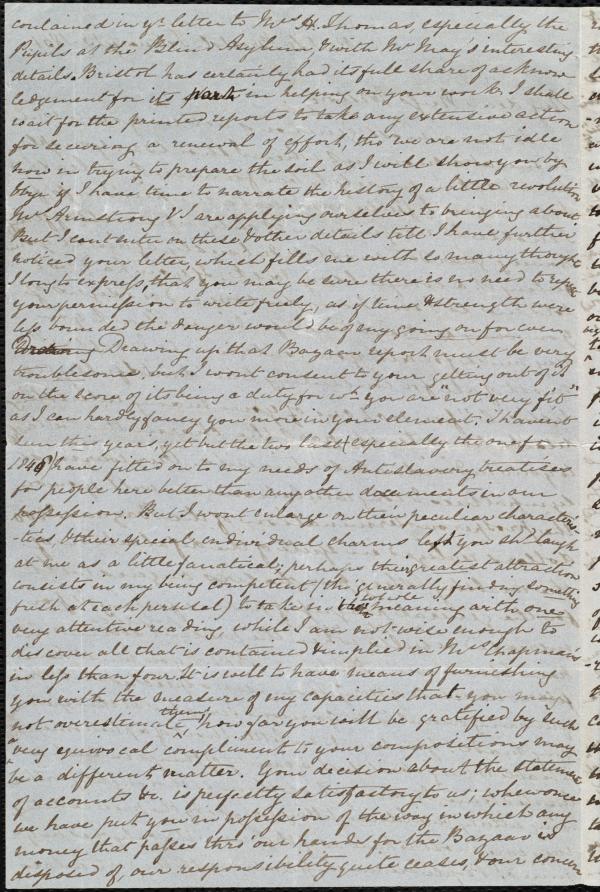 contained in yr. letter to Mrs. H. Thomas, especially the
Pupils at the Blind Asylum & with Mr May's interesting
details. Bristol has certainly had its full share of acknow
ledgement for its part in helping on your work, I shall
wait for the printed reports to take any extensive action
for securing a renewal of effort, tho' we are not idle
now in trying to prepare the soil as I will show you by
& bye if I have time to narrate the history of a little revolution
Mrs. Armstrong & I are applying ourselves to bringing about
But I cant enter on these & other details till I have further
noticed your letter, which fills me with so many thoughts
I long to express, that you may be sure there is no need to
your permission to write freely, as if time & strength were
less bounded the danger would be of my going on for ever
Drawing up that Bazaar report must be very
troublesome, but I wont consent to your getting out of it
on the score of its being a duty for wh. you are "not very fit"
as I can hardly fancy you more in your element. I havent
seen this years, yet but the two last (especially the one for
1849) have fitted on to my needs of Antislavery treatises
for people here better than any other documents in our
possession. But I wont enlarge on their peculiar characteris-
-tics & their special, individual charms lest you shd. laugh
at me as a little fanatical; perhaps their greatest attraction
consists in my being competent (tho' generally finding something
fresh at each perusal) to take in their meaning with one
very attentive reading, while I am not wise enough to
discover all that is contained & implied in Mrs Chapman's
in less than four. It is well to have means of furnishing
you with the measure of my capacities that you may
not overestimate them, how far you will be gratified by such
"very equivocal" compliment to your compositions may
be a different matter. Your decision about the statement
of accounts &c. is perfectly satisfactory to us; when once
we have put you in possession of the way in which any
money that passes thro our hands for the Bazaar is
disposed of our responsibility quite ceases, & our concern